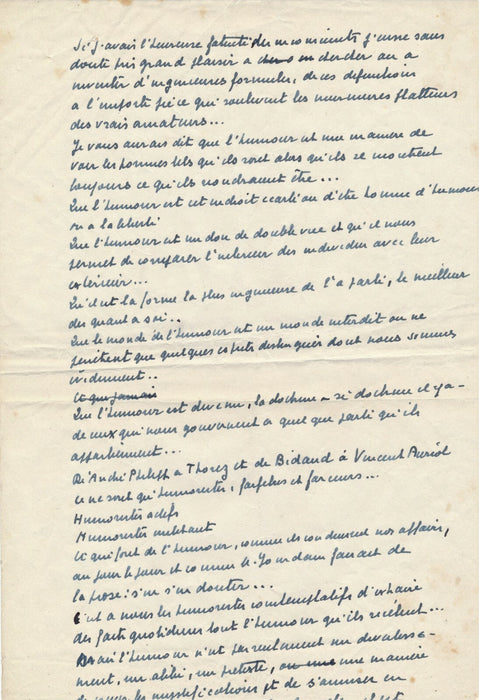 Si j'avais l'heureuse fatuité des inconscients j'eusse sans
doute pris grand plaisir à chercher ou à
inventer d'ingénieuses formules, de ces définitions
à l'emporte pièce qui soulèvent les murmures flatteurs
des vrais amateurs...
Je vous aurais dit que l'humour est une manière de
voir les hommes tels qu'ils sont alors qu'ils se montrent
toujours ce qu'ils voudraient être...
Que l'humour est cet endroit d'être homme d'humour
ou a la liberté
Que l'humour est un don de double vue et qu'il nous
permet de comparer l'intérieur des individus avec leur
extérieur...
Qu'il est la forme la plus ingénieuse de l'a parté, le meilleur
des quant à soi..
Que le monde de l'humour est un monde interdit où ne
pénètrent que quelques esprits distingués dont nous sommes
évidemment..
Ce que jamais
Que l'humour est devenu, la doctrine - si doctrine il y a -
de ceux qui nous gouvernent à quel que parti qu'ils
appartiennent...
D'André Philip à Thorez et de Bidault à Vincent Auriol
ce ne sont qu'humoristes, farfelus et farceurs...
Humoristes actifs
Humoristes militant
Ce qui font de l'humour, comme ils conduisent nos affaires,
au jour le jour et comme M. Jourdain faisait de
la prose : s'en s'en douter...
C'est à nous les humoristes contemplatifs d'extraire
des faits quotidiens tout l'humour qu'ils recèlent...
l'humour n'est pas seulement un
ment, un alibi, un prétexte, ou une une manière
les mystifications et de s'amuser en